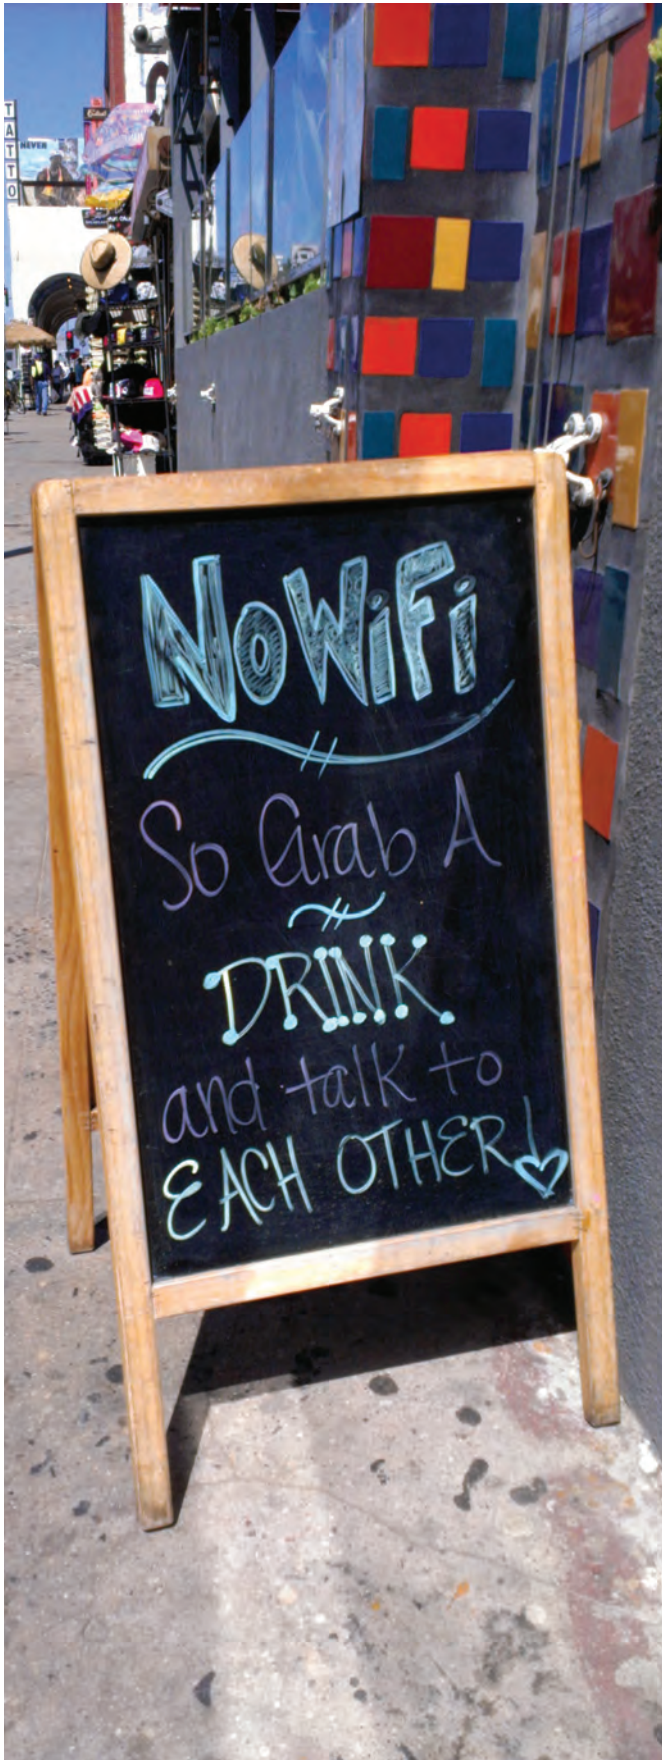 TATTO
NEVER
No WiFi
So Grab A
DRINK
and talk to
EACH OTHER!